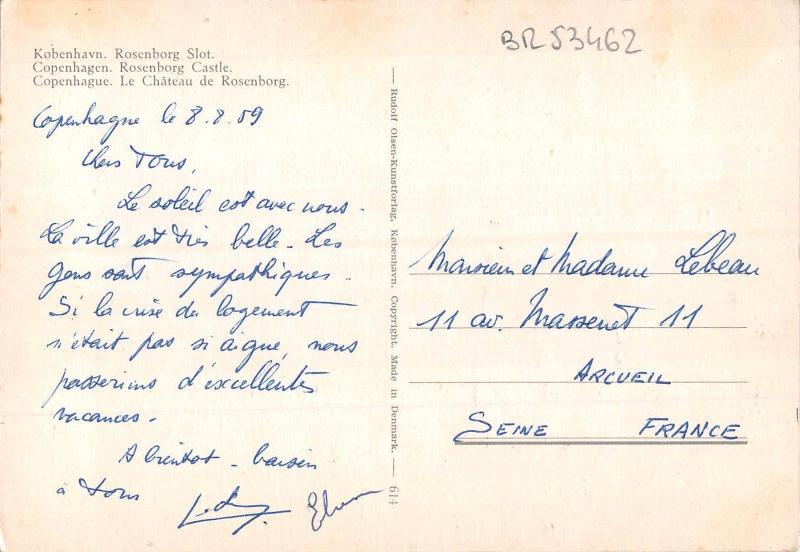 København. Rosenborg Slot.
Copenhagen. Rosenborg Castle.
Copenhague. Le Château de Rosenborg.
Copenhague le 8.8.59
Chers Tous,
Le soleil est avec nous.
La ville est très belle. Les
gens sont sympathiques.
Si la crise du logement
n'était pas si aigue, nous
passerions d'excellentes
vacances.
A bientot - baisers
à tous
— Rudolf Olsen-Kunstforlag, København. Copyright. Made in Denmark. — 614
BR 53462
Monsieur et Madame Lebeau
11 av. Massenet 11
ARCUEIL
SEINE FRANCE